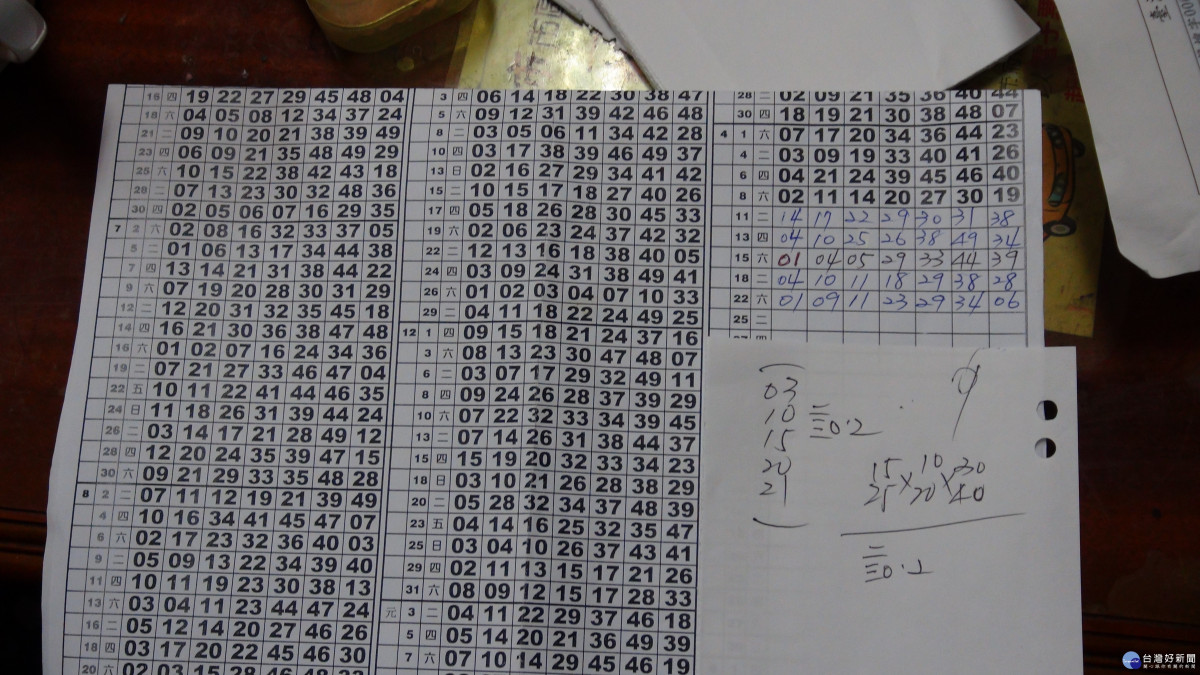 15 四 19 22 27 29 45 48 04
18 六 04 05 08 12 34 37 24
21 二 09 10 20 21 38 39 49
23 四 06 09 21 35 48 49 29
25 六 10 15 22 38 42 43 18
28 二 07 13 23 30 32 48 36
30 四 02 05 06 07 16 29 35
7 2 六 02 08 16 32 33 37 05
5 二 01 06 13 17 34 44 38
7 四 13 14 21 31 38 44 22
9 六 07 19 20 28 30 31 29
12 二 12 20 31 32 35 45 18
14 四 16 21 30 36 38 47 48
16 六 01 02 07 16 24 34 36
19 二 07 21 27 33 46 47 04
22 五 10 11 22 41 44 46 35
24 日 11 18 26 31 39 44 24
26 二 03 14 17 21 28 49 12
28 四 12 20 24 35 39 47 15
30 六 09 21 29 33 35 48 28
8 2 二 07 11 12 19 21 39 49
4 四 10 16 34 41 45 47 07
6 六 02 17 23 32 36 40 03
9 二 05 09 13 22 34 39 40
11 四 10 11 19 23 30 38 13
13 六 03 04 11 23 44 47 24
16 二 05 12 14 20 27 46 26
18 四 03 17 20 22 45 46 30
20 六 02 03 15 28 46 48
3 四 06 14 18 22 30 38 47
5 六 09 12 31 39 42 46 48
8 二 03 05 06 11 34 42 28
10 四 03 17 38 39 46 49 37
13 日 02 16 27 29 34 41 42
15 二 10 15 17 18 27 40 26
17 四 05 18 26 28 30 45 33
19 六 02 06 23 24 37 42 32
22 二 12 13 16 18 38 40 05
24 四 03 09 24 31 38 49 41
26 六 01 02 03 04 07 10 33
29 二 04 11 18 22 24 49 25
12 1 四 09 15 18 21 24 37 16
3 六 08 13 23 30 47 48 07
6 二 03 07 17 29 32 49 11
8 四 09 24 26 28 37 39 29
10 六 07 22 32 33 34 39 45
13 二 07 14 26 31 38 44 37
15 四 15 19 20 32 33 34 23
18 日 03 10 21 26 28 38 29
20 二 05 28 32 34 37 48 39
23 五 04 14 16 25 32 35 47
25 日 03 04 10 26 37 43 41
29 四 02 11 13 15 17 21 26
31 六 08 09 12 15 17 28 33
元 3 二 04 11 22 29 37 46 18
5 四 05 14 20 21 36 49 39
7 六 07 10 14 29 45 46 19
28 二 02 09 21 35 36 40 44
30 四 18 19 21 30 38 48 07
4 1 六 07 17 20 34 36 44 23
4 二 03 09 19 33 40 41 26
6 四 04 21 24 39 45 46 40
8 六 02 11 14 20 27 30 19
11 二 14 17 22 29 30 31 38
13 四 04 10 25 26 38 49 34
15 六 01 04 05 29 33 44 39
18 二 04 10 11 18 29 38 28
22 六 01 09 11 23 29 34 06
25 二
03
10
15
20
21
二
三0.2
15 10 30
25 × 20 × 40
二
三0.2
台灣好新聞